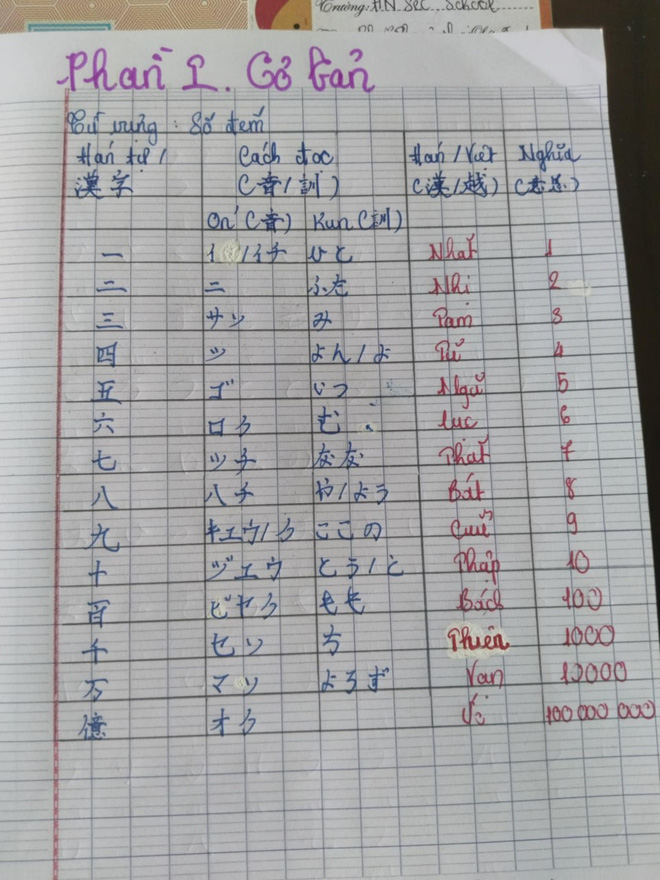 Trường: H.N. Sec. School
Phần I. Cơ bản
Từ vựng: Số đếm
Hán tự / Cách đọc Hán / Việt Nghĩa
漢字 (音/訓) (漢/越) (意思)
On' (音) Kun (訓)
一 イ /イチ ひと Nhất 1
二 ニ ふた Nhị 2
三 サン み Tam 3
四 シ よん/よ Tứ 4
五 ゴ いつ Ngũ 5
六 ロク む Lục 6
七 シチ なな Thất 7
八 ハチ や/よう Bát 8
九 キュウ/ク ここの Cửu 9
十 ジュウ とう/と Thập 10
百 ヒャク もも Bách 100
千 セン ち Thiên 1000
万 マン よろず Vạn 10000
億 オク Ức 100 000 000